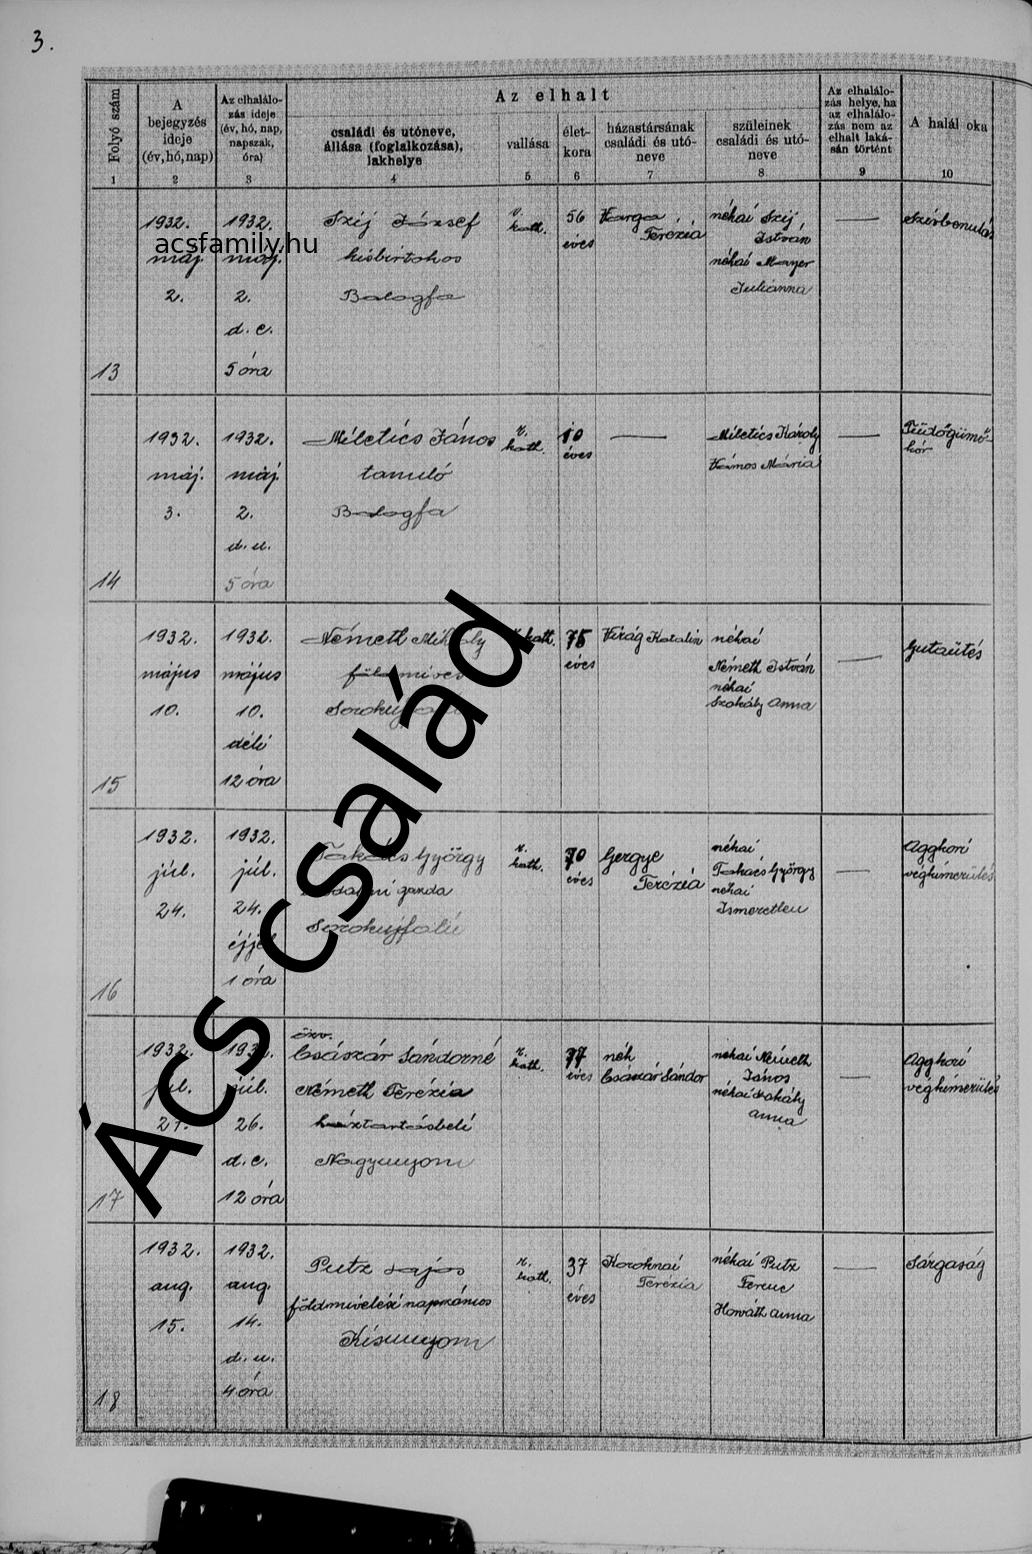 3.
Az elhalt
Folyó szám
A bejegyzés ideje (év, hó, nap)
Az elhalálo-
zás ideje
(év, hó, nap,
napszak,
óra)
családi és utóneve,
állása (foglalkozása),
lakhelye
vallása
élet-
kora
házastársának
családi és utó-
neve
szüleinek
családi és utó-
neve
Az elhalálo-
zás helye, ha
az elhalálo-
zás nem az
elhalt laká-
sán történt
A halál oka
1 2 3 4 5 6 7 8 9 10
13
1932.
máj.
2.
1932.
máj.
2.
d. e.
5 óra
Szíj József
kisbirtokos
Balogfa
r.
kath.
56
éves
Varga
Terézia
néhai Szíj
István
néhai Mayer
Julianna
Szívbénulás
14
1932.
máj.
3.
1932.
máj.
2.
d. u.
5 óra
Miletics János
tanuló
Balogfa
r.
kath.
10
éves
Miletics Károly
Vámos Mária
Tüdőgümő-
kór
15
1932.
május
10.
1932.
május
10.
déli
12 óra
Németh Mihály
földmíves
r. kath.
75
éves
Virág Katalin
néhai
Németh István
néhai
Szakály Anna
Gutaütés
16
1932.
júl.
24.
1932.
júl.
24.
éjjel
1 óra
Takács György
gazda
Sorokujfalu
r.
kath.
70
éves
Gergye
Terézia
néhai
Takács György
néhai
Ismeretlen
Aggkori
végkimerülés
17
1932.
júl.
27.
1932.
júl.
26.
d. e.
12 óra
özv.
Császár Sándorné
Németh Terézia
háztartásbeli
Nagyunyom
r.
kath.
77
éves
néh
Császár Sándor
néhai Németh
János
néhai Szakály
Anna
Aggkori
végkimerülés
18
1932.
aug.
15.
1932.
aug.
14.
d. u.
4 óra
Putz Lajos
földmívelési napszámos
Kisunyom
r.
kath.
37
éves
Koroknai
Terézia
néhai Putz
Ferenc
Horváth Anna
Sárgaság
acsfamily.hu
Ács család